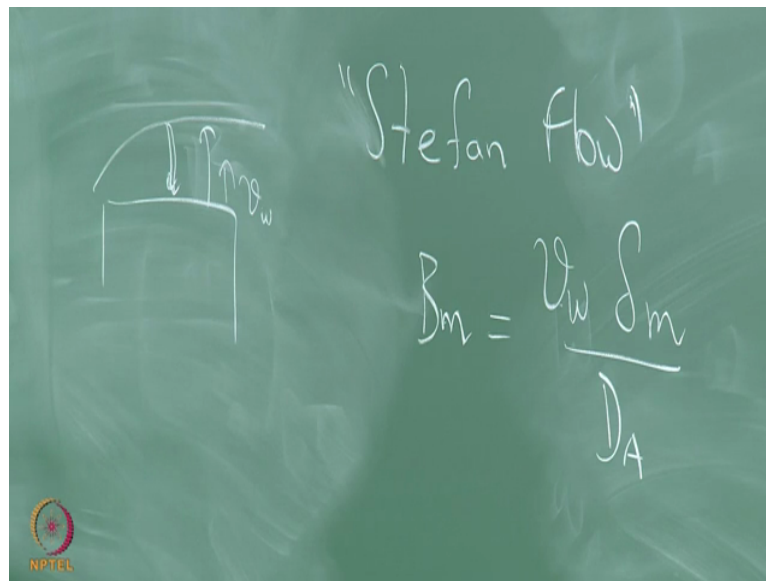 "Stefan Flow"
v_w
B_m = v_w δ_m / D_A
NPTEL